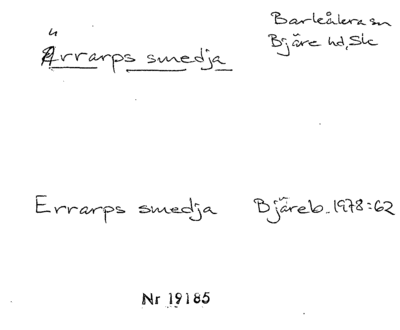 Ärrarps smedja
Barkåkra sn
Bjäre hd, Sk
Errarps smedja Bjäreb. 1978:62
Nr 19185